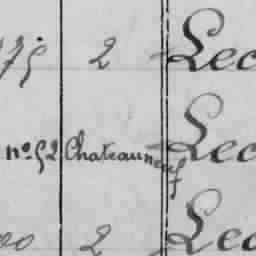 75 2 Lec
nº 52 Chateauneuf Lec
00 2 Lec